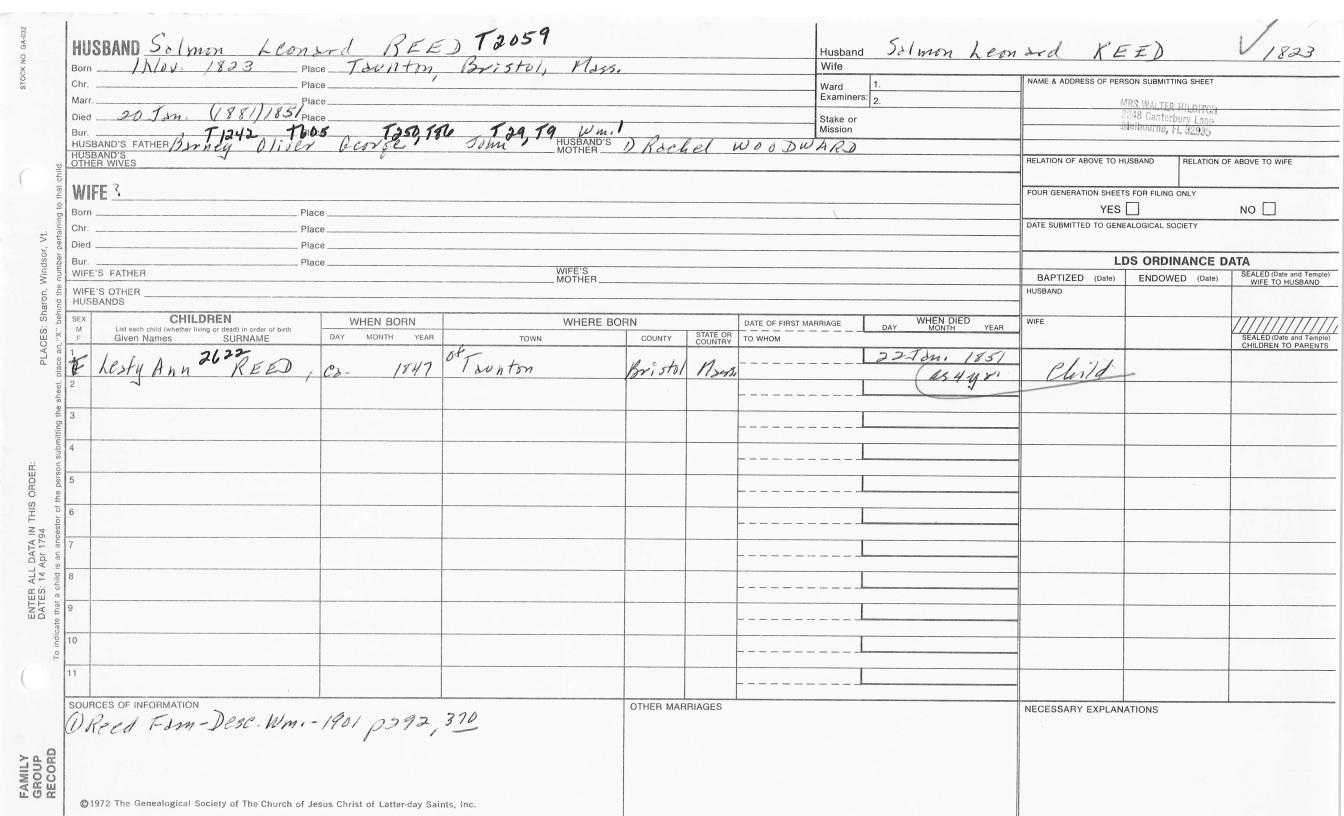 STOCK NO. GA-032
PLACES: Sharon, Windsor, Vt.
ENTER ALL DATA IN THIS ORDER:
DATES: 14 Apr 1794
To indicate that a child is an ancestor of the person submitting the sheet, place an "X" behind the number pertaining to that child.
FAMILY GROUP RECORD
HUSBAND Solmon Leonard REED T2059
Born 1 Nov. 1823 Place Taunton, Bristol, Mass.
Chr. Place
Marr. Place
Died 20 Jan. (1881) 1851 Place
Bur. T1242 T605 T250, T86 T29, T9 Wm.1
HUSBAND'S FATHER Barney Oliver George, John HUSBAND'S MOTHER ① Rachel WOODWARD
HUSBAND'S OTHER WIVES
WIFE ?
Born Place
Chr. Place
Died Place
Bur. Place
WIFE'S FATHER WIFE'S MOTHER
WIFE'S OTHER HUSBANDS
Husband Solmon Leonard REED ✓ 1823
Wife
Ward Examiners: 1.
2.
Stake or Mission
NAME & ADDRESS OF PERSON SUBMITTING SHEET
MRS. WALTER HILBITCH
2248 Canterbury Lane
Melbourne, FL 32935
RELATION OF ABOVE TO HUSBAND RELATION OF ABOVE TO WIFE
FOUR GENERATION SHEETS FOR FILING ONLY
YES NO
DATE SUBMITTED TO GENEALOGICAL SOCIETY
LDS ORDINANCE DATA
BAPTIZED (Date) ENDOWED (Date) SEALED (Date and Temple) WIFE TO HUSBAND
HUSBAND
WIFE
SEALED (Date and Temple) CHILDREN TO PARENTS
SEX M F CHILDREN List each child (whether living or dead) in order of birth Given Names SURNAME
WHEN BORN DAY MONTH YEAR
WHERE BORN TOWN COUNTY STATE OR COUNTRY
DATE OF FIRST MARRIAGE TO WHOM
WHEN DIED DAY MONTH YEAR
1 F Lesty Ann 2622 REED, ca. 1847 of Taunton Bristol Mass 22 Jan. 1851
2 (as 4 yr. Child
3
4
5
6
7
8
9
10
11
SOURCES OF INFORMATION
① Reed Fam-Desc. Wm.-1901 p292, 370
OTHER MARRIAGES
NECESSARY EXPLANATIONS
©1972 The Genealogical Society of The Church of Jesus Christ of Latter-day Saints, Inc.